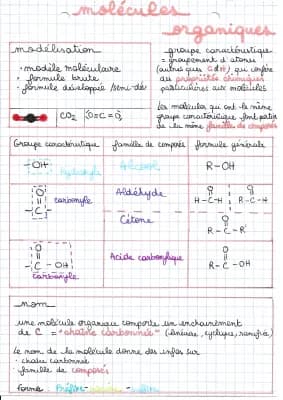 molécules
organiques
modélisation
• modèle moléculaire
• formule brute
• formule développée / semi-dév
CO₂ |O=C=O|
groupe caractéristique
= groupement d'atomes
(autres que C et H) qui confère
des propriétés chimiques
particulières aux molécules
Les molécules qui ont le même
groupe caractéristique font partie
de la même famille de composés
Groupe caractéristique famille de composés formule générale
-OH hydroxyle Alcool R-OH
O
-C- carbonyle Aldéhyde
O O
H-C-H R-C-H
Cétone
O
R-C-R'
O
-C-OH Acide carboxylique
carboxyle
O
R-C-OH
nom
une molécule organique comporte un enchaînement
de C = "chaîne carbonnée" (linéaire, cyclique, ramifiée)
Le nom de la molécule donne des infos sur
• chaîne carbonée
• famille de composés
forme : Préfixe-